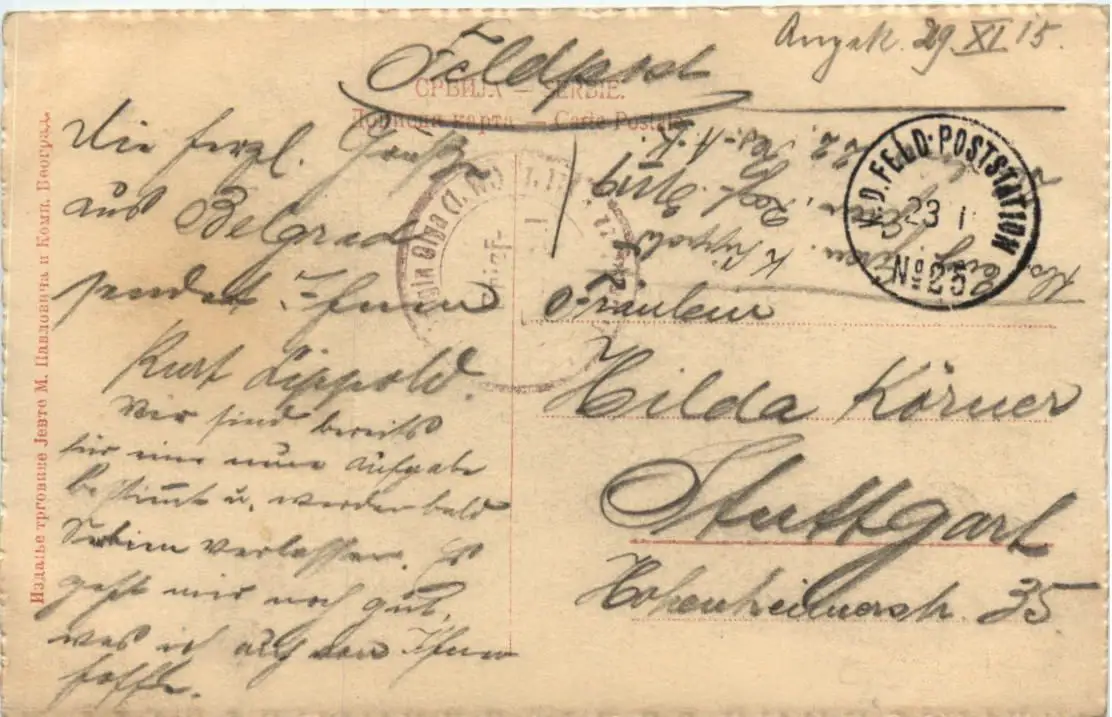 Feldpost
29 XI 15.
СРБИЈА — SERBIE.
Дописна карта — Carte Postale
Die herzl. Grüße
aus Belgrad
sendet Ihnen
Kurt Lippold.
Wir sind bereits
für eine neue Aufgabe
bestimmt u. werden bald
Serbien verlassen. Es
geht mir noch gut,
was ich auch von Ihnen
hoffe.
K.D. FELD-POSTSTATION
23
No 25
Olga
Fräulein
Hilda Körner
Stuttgart
Hohenheimerstr. 35
K. Lippold
Издање трговине Јевте М. Павловића и Комп. Београд.